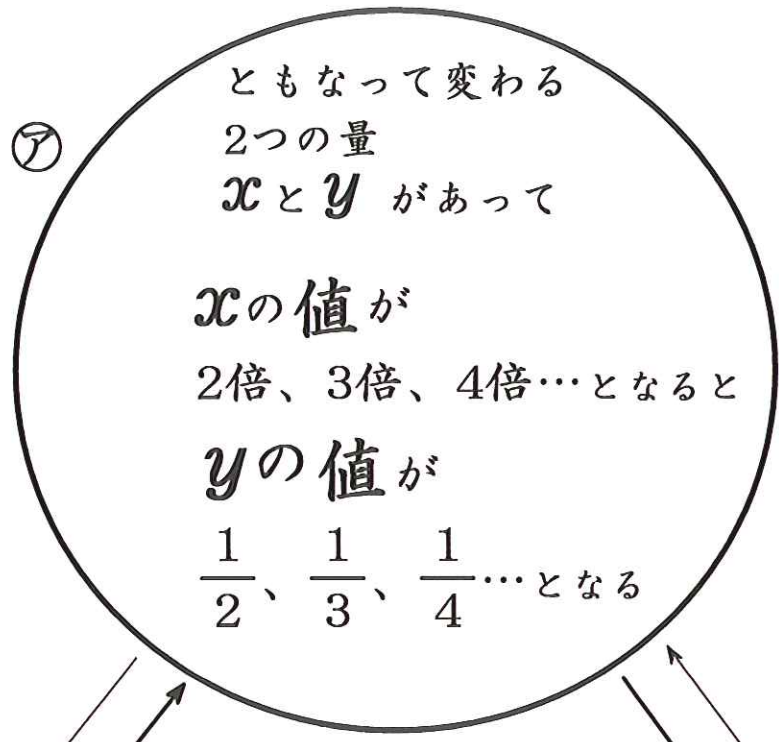 ㋐
ともなって変わる
2つの量
xとy があって
xの値が
2倍、3倍、4倍…となると
yの値が
1/2、1/3、1/4…となる